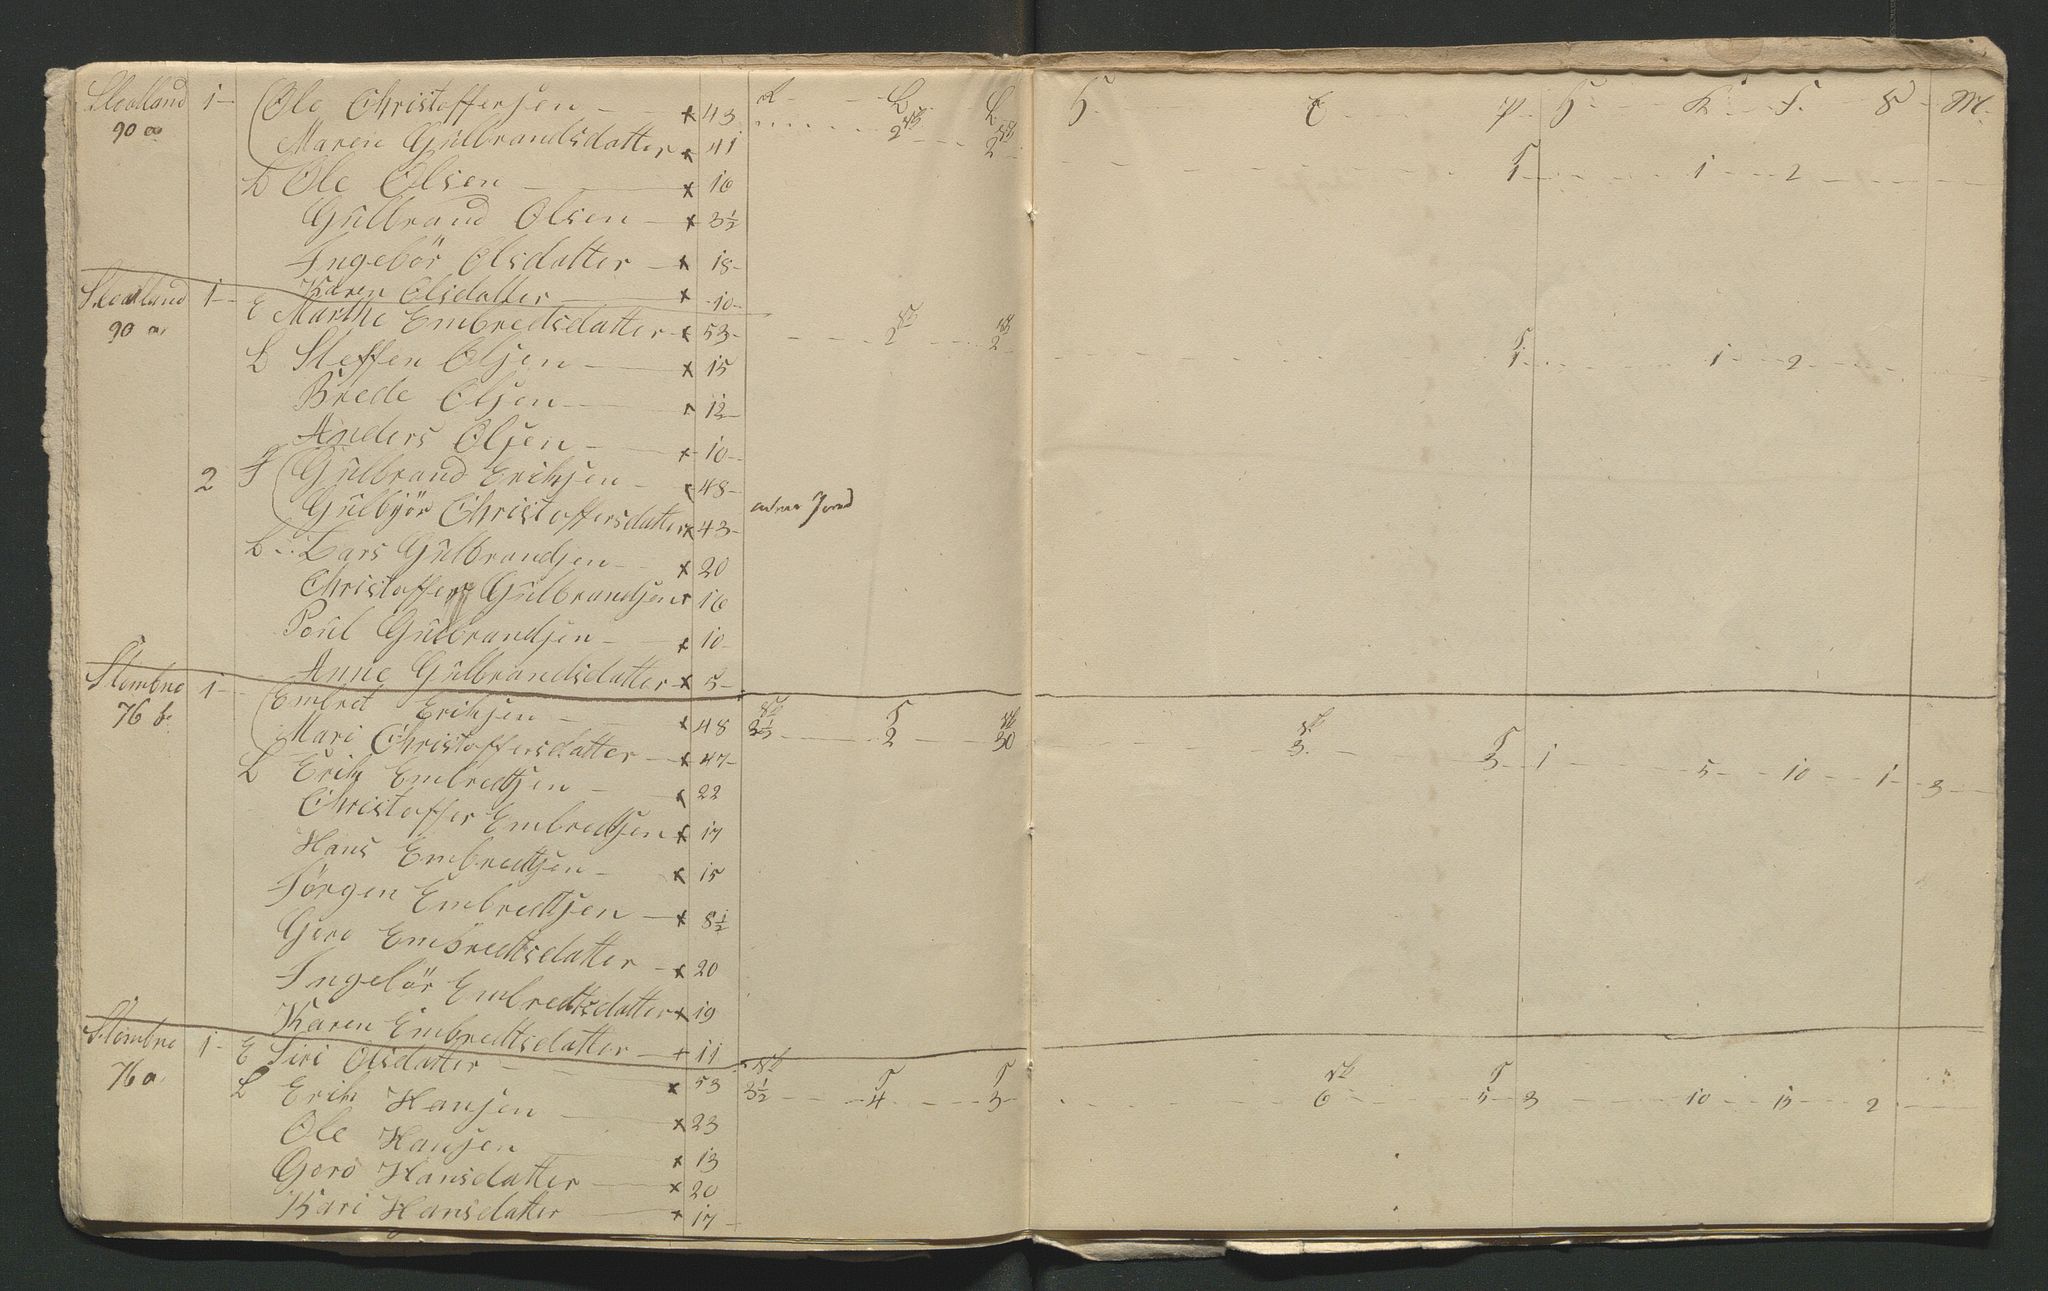 1 Ole Christoffersen x 43 R L L H E P H K F S M
90 a Maren Gulbrandsdatter x 41 2 2
L Ole Olsen x 16 1 1 2
Gulbrand Olsen x 3½
Ingebör Olsdatter x 18
1 Karen Olsdatter x 10
E Marthe Embretsdatter x 53 2 2
90 a
L Steffen Olsen x 15 1 1 2
Brede Olsen 12
Anders Olsen x 10
2 F Gulbrand Eriksen x 48
Gulbjör Christoffersdatter x 43 uden Jord
L Lars Gulbrandsen x 20
Christoffer Gulbrandsen 16
Poul Gulbrandsen x 10
Anne Gulbrandsdatter x 5
Stombne 1 Embret Eriksen x 48 2 30 3 3 1 5 10 1 3
76 b. Mari Christoffersdatter x 47
L Erik Embredtsen x 22
Christoffer Embredtsen x 17
Hans Embredtsen x 15
Jörgen Embredtsen x 8½
Goro Embredtsdatter x 20
Ingebör Embredtsdatter x 19
Karen Embredtsdatter x 11
Stombne 1 E Siri Olsdatter x 53 3½ 4 3 6 5 3 10 15 2
76 a. L Erik Hansen x 23
Ole Hansen x 13
Goro Hansdatter x 20
Kari Hansdatter x 17